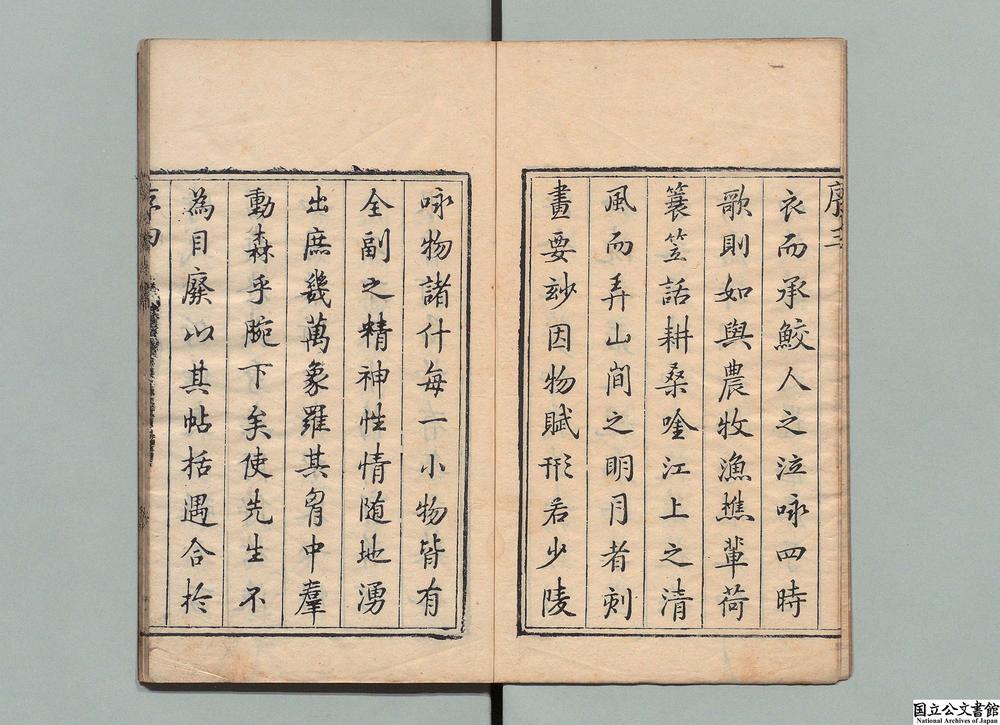 衣而承鮫人之泣咏四時
歌則如與農牧漁樵輩荷
蓑笠話耕桑唫江上之清
風而弄山間之明月者刻
畫要玅因物賦形若少陵
咏物諸什每一小物皆有
全副之精神性情随地湧
出庶幾萬象羅其胷中羣
動森乎腕下矣使先生不
為目廢以其帖括遇合於
国立公文書館
National Archives of Japan